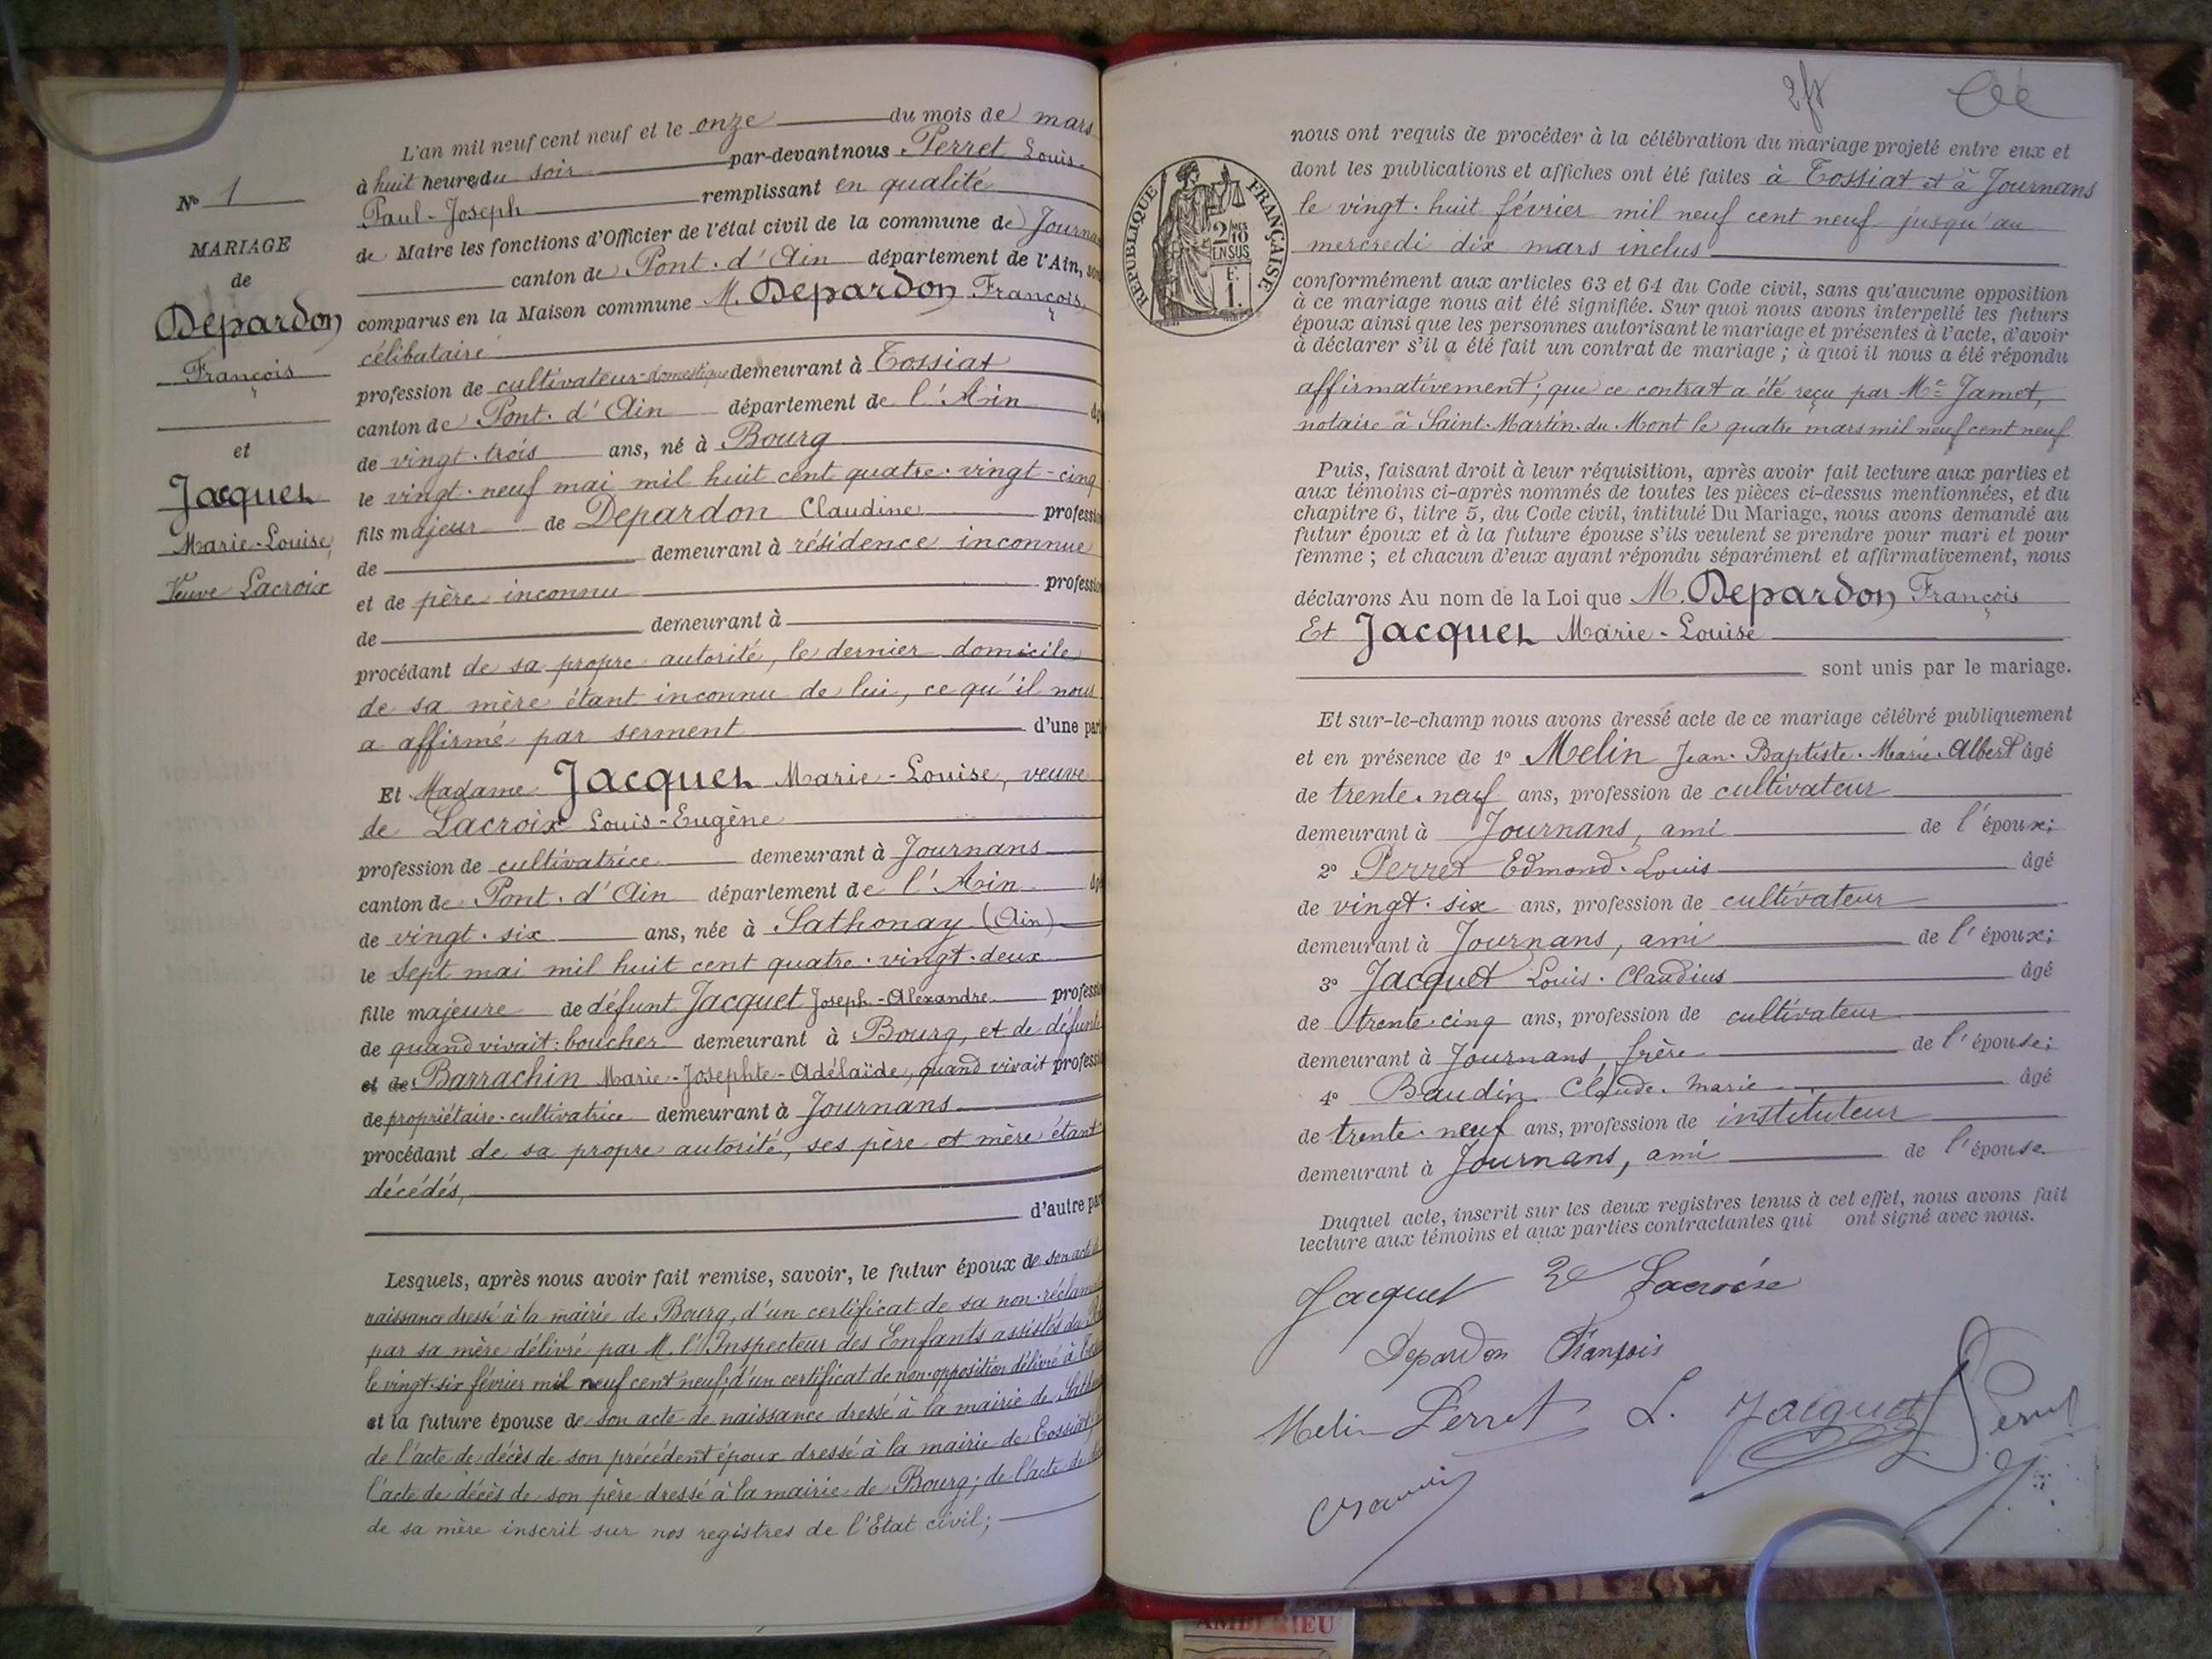 N° 1
MARIAGE
de
Depardon
François
et
Jacquet
Marie-Louise,
Veuve Lacroix
L'an mil neuf cent neuf et le onze du mois de mars
à huit heures du soir par-devant nous Perret Louis-
Paul-Joseph remplissant en qualité
de Maire les fonctions d'Officier de l'état civil de la commune de
canton de Pont-d'Ain département de l'Ain,
comparus en la Maison commune M. Depardon François,
célibataire
profession de cultivateur-domestique demeurant à Tossiat
canton de Pont-d'Ain département de l'Ain
de vingt-trois ans, né à Bourg
le vingt-neuf mai mil huit cent quatre-vingt-cinq
fils majeur de Depardon Claudine
de demeurant à résidence inconnue
et de père inconnu
de demeurant à
procédant de sa propre autorité, le dernier domicile
de sa mère étant inconnu de lui, ce qu'il nous
a affirmé par serment d'une
Et Madame Jacquet Marie-Louise, veuve
de Lacroix Louis-Eugène
profession de cultivatrice demeurant à Journans
canton de Pont-d'Ain département de l'Ain
de vingt-six ans, née à Sathonay (Ain)
le sept mai mil huit cent quatre-vingt-deux
fille majeure de défunt Jacquet Joseph-Alexandre
de quand vivait: boucher demeurant à Bourg, et de défunte
et de Barrachin Marie-Josephte-Adélaïde, quand vivait
de propriétaire-cultivatrice demeurant à Journans
procédant de sa propre autorité, ses père et mère étant
décédés,
d'autre
Lesquels, après nous avoir fait remise, savoir, le futur époux de son acte de
naissance dressé à la mairie de Bourg, d'un certificat de sa non-
par sa mère délivré par M. l'Inspecteur des Enfants assistés du
le vingt-six février mil neuf cent neuf; d'un certificat de non-opposition délivré à
et la future épouse de son acte de naissance dressé à la mairie de
de l'acte de décès de son précédent époux dressé à la mairie de Tossiat,
l'acte de décès de son père dressé à la mairie de Bourg; de l'acte de
de sa mère inscrit sur nos registres de l'Etat civil;
RÉPUBLIQUE FRANÇAISE
2 MES
10
EN SUS
F.
1.
nous ont requis de procéder à la célébration du mariage projeté entre eux et
dont les publications et affiches ont été faites à Tossiat et à Journans
le vingt-huit février mil neuf cent neuf jusqu'au
mercredi dix mars inclus
conformément aux articles 63 et 64 du Code civil, sans qu'aucune opposition
à ce mariage nous ait été signifiée. Sur quoi nous avons interpellé les futurs
époux ainsi que les personnes autorisant le mariage et présentes à l'acte, d'avoir
à déclarer s'il a été fait un contrat de mariage ; à quoi il nous a été répondu
affirmativement; que ce contrat a été reçu par Me Jamet,
notaire à Saint-Martin-du-Mont le quatre mars mil neuf cent neuf
Puis, faisant droit à leur réquisition, après avoir fait lecture aux parties et
aux témoins ci-après nommés de toutes les pièces ci-dessus mentionnées, et du
chapitre 6, titre 5, du Code civil, intitulé Du Mariage, nous avons demandé au
futur époux et à la future épouse s'ils veulent se prendre pour mari et pour
femme ; et chacun d'eux ayant répondu séparément et affirmativement, nous
déclarons Au nom de la Loi que M. Depardon François
Et Jacquet Marie-Louise
sont unis par le mariage.
Et sur-le-champ nous avons dressé acte de ce mariage célébré publiquement
et en présence de 1° Melin Jean-Baptiste-Marie-Albert âgé
de trente-neuf ans, profession de cultivateur
demeurant à Journans, ami de l'époux;
2° Perret Edmond-Louis âgé
de vingt-six ans, profession de cultivateur
demeurant à Journans, ami de l'époux;
3° Jacquet Louis-Claudius âgé
de trente-cinq ans, profession de cultivateur
demeurant à Journans, frère de l'épouse;
4° Baudin Claude-Marie âgé
de trente-neuf ans, profession de instituteur
demeurant à Journans, ami de l'épouse.
Duquel acte, inscrit sur les deux registres tenus à cet effet, nous avons fait
lecture aux témoins et aux parties contractantes qui ont signé avec nous.
Jacquet Lacroix
Depardon François
Melin Perret L. Jacquet Perret
AMBERIEU